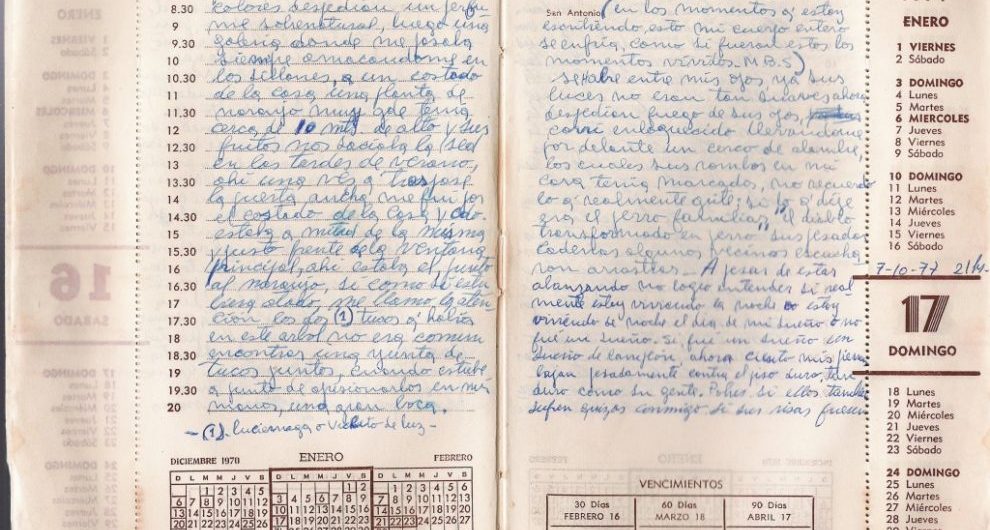 8.30 colores despedían un perfu
9 me sobrenatural, luego una
9.30 galería donde me posaba
10 siempre amacandome en
10.30 los sillones, a un costado
11 de la casa una planta de
11.30 naranjo muy gde tenía
12 cerca de 10 mts de alto y sus
12.30 frutos nos saciaba la sed
13 en las tardes de verano,
13.30 ahí una vés q' traspasé
14 la puerta ancha me fuí por
14.30 el costado de la casa y cdo
15 estaba a mitad de la misma
15.30 y justo frente de la ventana
16 principal, ahi estaba el, junto
16.30 al naranjo, si como si estu
17 biera atado, me llamo la aten
17.30 ción los dos (1) tucos q' habia
18 en este arbol no era comun
18.30 encontrar una yunta de
19 tucos juntos, cuando estube
19.30 a punto de apricionarlos en mis
20 manos, una gran boca,
- (1). luciernaga o vichito de luz -
DICIEMBRE 1970 ENERO FEBRERO
D L M M J V S
San Antonio (en los momentos q' estoy
escribiendo esto mi cuerpo entero
se enfría, como si fueran estos los
momentos vividos. M.B.S)
se abre entre mis ojos, ya sus
luces no eran tan suaves ahora
despedían fuego de sus ojos,
corri enloquecido llevandome
por delante un cerco de alambre,
los cuales sus rombos en mi
cara tenía marcados, no recuerdo
lo q' realmente grité; si lo q' dije
era el perro familiar, "el diablo
transformado en perro" sus pesadas
cadenas algunos vecinos escucha
ron arrastrar - A pesar de estas
alanzando no logro entender si real
mente estoy viviendo la noche o estoy
viviendo de noche el día de mi sueño o no
fue un sueño. Si fue un sueño sin
sueño de ahora cuando mis
bajan pesadamente contra el piso duro, tan
duro como su gente. Pobres si ellos también
sufren quizas conmigo si sus risas fueran
ENERO
1 VIERNES
2 Sábado
3 DOMINGO
4 Lunes
5 Martes
6 MIERCOLES
7 Jueves
8 Viernes
9 Sábado
10 DOMINGO
11 Lunes
12 Martes
13 Miércoles
14 Jueves
15 Viernes
16 Sábado
7-10-77
17
DOMINGO
18 Lunes
19 Martes
20 Miércoles
21 Jueves
22 Viernes
23 Sábado
24 DOMINGO
25 Lunes
26 Martes
27 Miércoles
28 Jueves
VENCIMIENTOS
30 Días 60 Días 90 Días
FEBRERO 16 MARZO 18 ABRIL 17